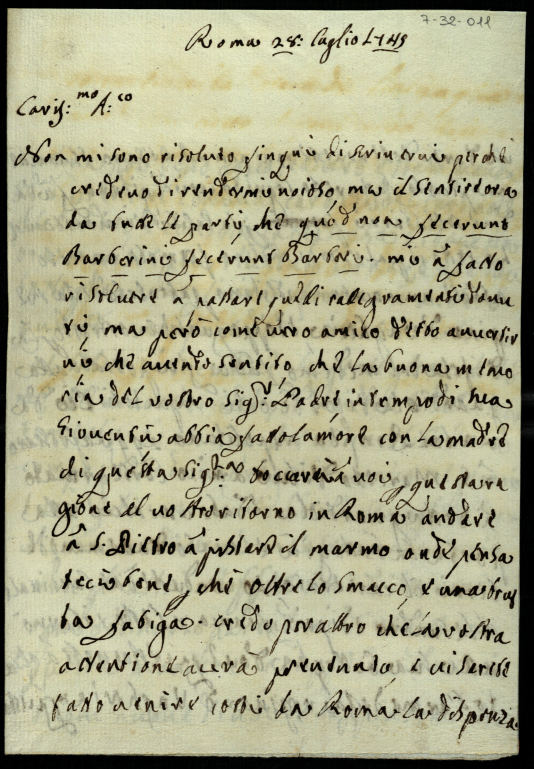 7-32-011
Roma 28: luglio 1745
Cariss:mo A:co
Non mi sono risoluto sin qui di scriverui perche
credeuo di rendermi noioso ma il sentire ora
da tutte le parti, che quod non fecerunt
Barberini fecerunt Barberi. mi à fatto
risoluere à passare quelli rallegramenti douu
ti, ma però come uero amico debbo auuertir
ui che auendo sentito che la buona memo
ria del uostro Sig:r Padre in tempo di sua
Giouentù abbia fatto lamore con la madre
di questa Sig:ra toccarà à uoi, per questa ra
gione al uostro ritorno in Roma andare
à S. Pietro à pistare il marmo onde pensa
teci bene, che oltre lo smacco, è una brut
ta fatiga. credo per altro che la uostra
attentione auerà preueduto, e ui serete
fatto uenire costì da Roma la dispenza